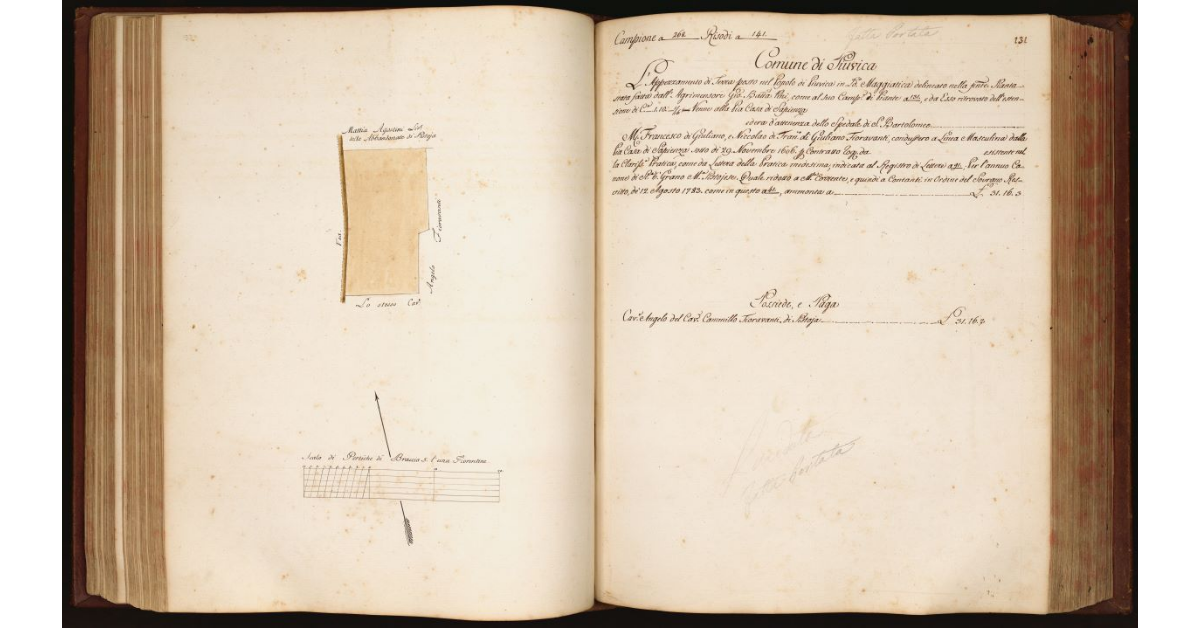 Mattia Agostini Liv.
Via
Fioravanti
Angelo
Lo stesso Cav.
Scala di Pertiche di Braccia 5. l'una Fiorentine
Campione a 261 Risodi a 141
Gatta Portata
131
Comune di Piuvica
L'Appezzamento di Terra posto nel Popolo di Piuvica in Lo. Maggiatica delineato nella Pianta
stata fatta dall'Agrimensore Gio. Batta e da Esso ritrovato dell'esten-
sione di Venne alla Pia Casa di Sapienza
ed era d'attenenza dello Spedale di S. Bartolomeo
M. Francesco di Giuliano, e Niccolao di Fran. di Giuliano Fioravanti, condussero a Linea Masculina dalla
Pia Casa di Sapienza sotto di 29. Novembre 1696. p. Contratto Rog. da esistente nel
la Clariss. Pratica, come da Lettera della Pratica medesima, indicata al Registro di Lettere Per l'annuo Ca-
none di Grano Quale ridotto a Corrente, e quindi a Contanti in Ordine del Sovrano Res-
critto, di 12. Agosto 1783. come in questo ammonta a £. 31. 16. 3
Possiede, e Paga
Cav. Angelo del Cav. Cammillo Fioravanti, di £. 31. 16. 3
Gatta Portata